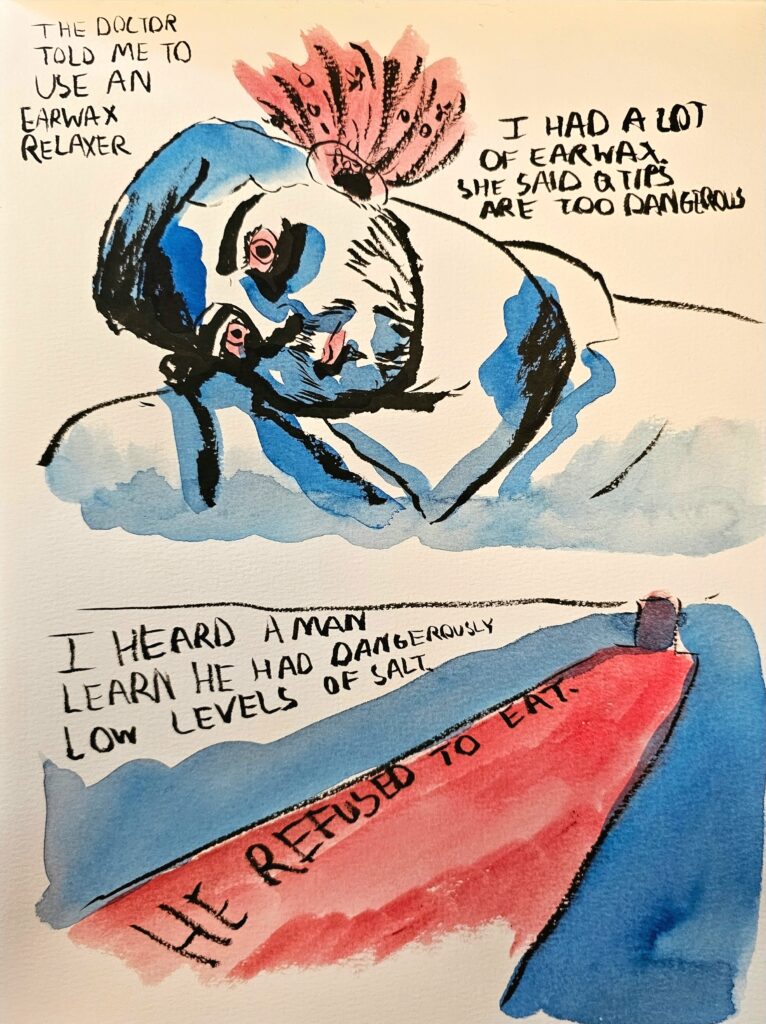 THE DOCTOR
TOLD ME TO
USE AN
EARWAX
RELAXER
I HAD A LOT
OF EARWAX.
SHE SAID QTIPS
ARE TOO DANGEROUS
I HEARD A MAN
LEARN HE HAD DANGEROUSLY
LOW LEVELS OF SALT.
HE REFUSED TO EAT.